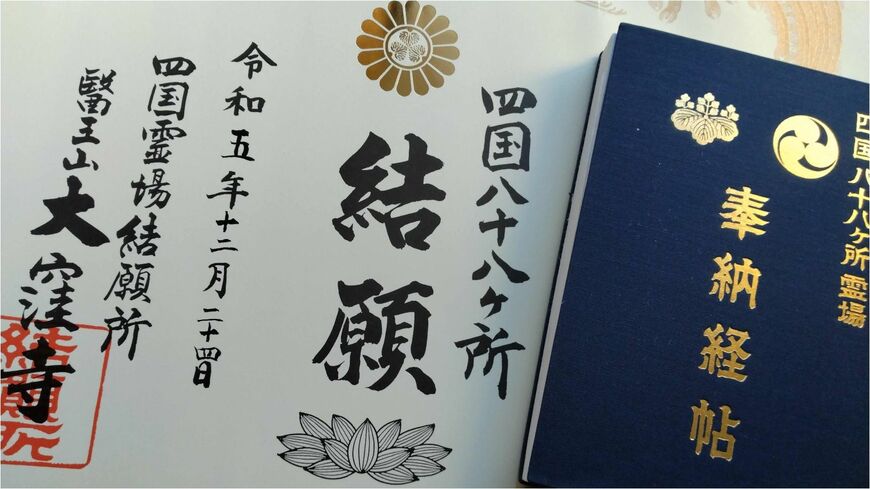 四国八十八ヶ所
結願
令和五年十二月二十四日
四国霊場結願所
醫王山大窪寺
結願所
四国八十八ヶ所霊場
奉納経帖